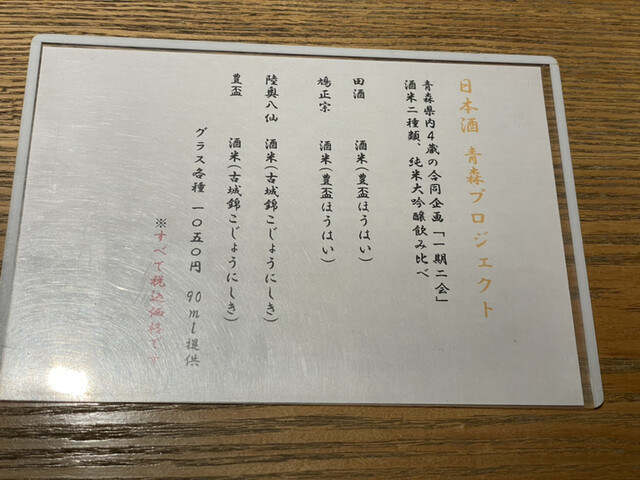 日本酒 青森プロジェクト
青森県内4蔵の合同企画「一期二会」
酒米二種類、純米大吟醸飲み比べ
田酒 酒米(豊盃ほうはい)
鳩正宗 酒米(豊盃ほうはい)
陸奥八仙 酒米(古城錦こじょうにしき)
豊盃 酒米(古城錦こじょうにしき)
グラス各種 一〇五〇円 90ml提供
※すべて税込価格です